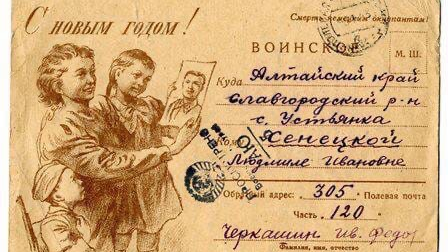 С НОВЫМ ГОДОМ!
Смерть немецким оккупантам!
ВОИНСКОЕ
М. Ш.
Куда Алтайский край
Славгородский р-н
с. Устьянка
Кому Хенецкой
Людмиле Ивановне
Обратный адрес: 305 Полевая почта
Часть 120
Черкашин Ив. Федо
Фамилия, имя, отчество